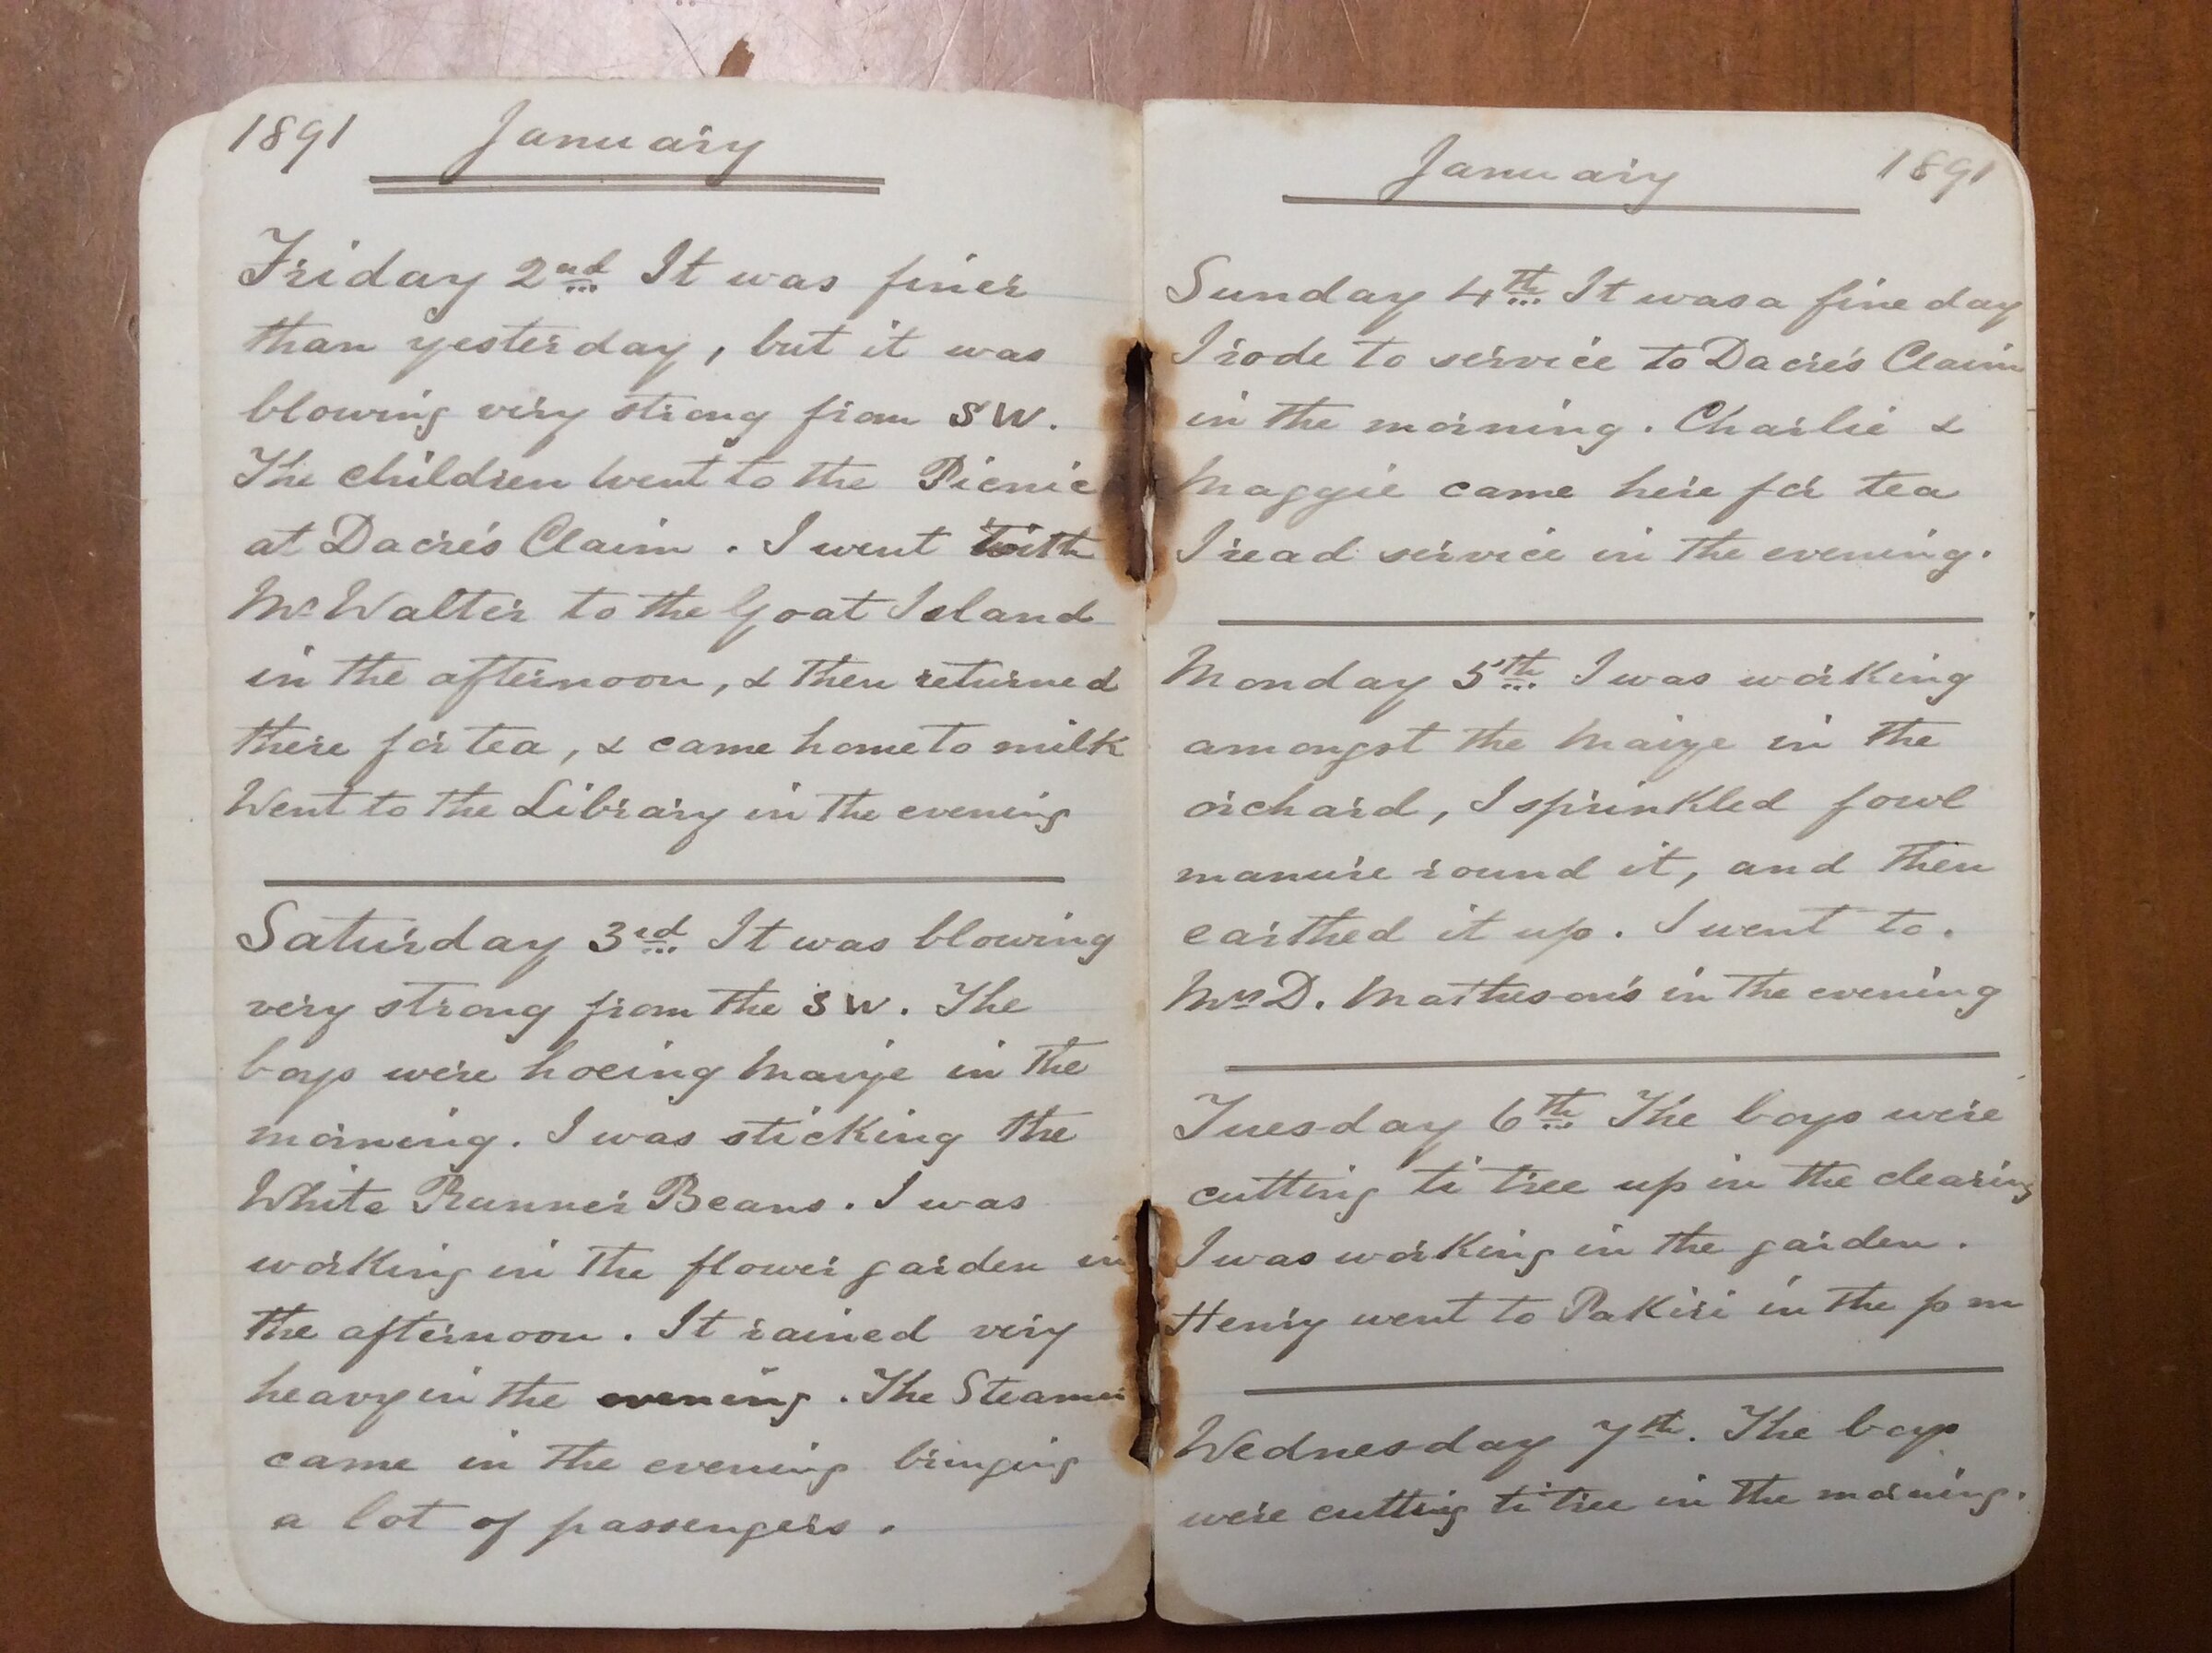 1891 January
Friday 2nd It was finer
than yesterday, but it was
blowing very strong from SW.
The children went to the Picnic
at Dacre's Claim. I went with
Mr Walter to the Goat Island
in the afternoon, & then returned
there for tea, & came home to milk
Went to the Library in the evening
Saturday 3rd It was blowing
very strong from the SW. The
boys were hoeing Maize in the
morning. I was sticking the
White Runner Beans. I was
working in the flower garden in
the afternoon. It rained very
heavy in the evening. The Steamer
came in the evening bringing
a lot of passengers.
January 1891
Sunday 4th It was a fine day
I rode to service to Dacre's Claim
in the morning. Charlie &
Maggie came here for tea
I read service in the evening.
Monday 5th I was working
amongst the Maize in the
orchard, I sprinkled fowl
manure round it, and then
earthed it up. I went to.
Mrs D. Matheson's in the evening
Tuesday 6th The boys were
cutting ti tree up in the clearing
I was working in the garden.
Henry went to Pakiri in the pm
Wednesday 7th. The boys
were cutting ti tree in the morning.